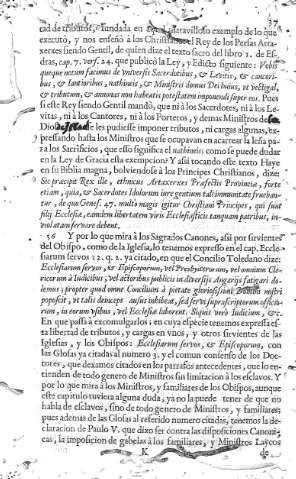 37
dad de tributos, fundada en el maravilloso exemplo de lo que
executò, y nos enseñò à los Christianos el Rey de los Persas Arta-
xerxes siendo Gentil, de quien dize el texto sacro del libro 1. de Es-
dras, cap. 7. vers. 24. que publicò la Ley, y Edicto siguiente: Vobis
queque notum facimus de vniversis Sacerdotibus, & Levitis, & cantori-
bus, & Ianitoribus, nathineis, & Ministris domus Dei huius, vt vectigal,
& tributum, & annonas non habeatis potestatem imponendi super eos. Pues
si este Rey siendo Gentil mandò, que ni à los Sacerdotes, ni à los Le-
vitas, ni à los Cantores, ni à los Porteros, y demas Ministros de
Dios se les pudiesse imponer tributos, ni cargas algunas, ex-
pressando hasta los Ministros que se ocupavan en acarrear la leña pa-
ra los Sacrificios, que esso significa el nathineis: como se puede dudar
en la Ley de Gracia esta exempcion? Y assi tocando este texto Haye
en su Biblia magna, bolviendose à los Principes Christianos, dize:
Sic præcipit Rex ille, ethnicus Artaxerxes Præfectis Provinciæ, forte
etiam, quia, & Sacerdotes Idolorum iure gentium tali immunitate fruebán-
tur, de quo Genes. 47. multò magis igitur Christiani Principes, qui sunt
filij Ecclesiæ, eandem libertatem viris Ecclesiasticis tanquam patribus, in-
violatam servare debent.
56 Y por lo que mira à los Sagrados Canones, assi por sirvientes
del Obispo, como de la Iglesia, lo tenemos expresso en el cap. Eccle-
siarum servos 12. q. 2. ya citado, en que el Concilio Toledano dize:
Ecclesiarum servos, & Episcoporum, vel Presbyterorum, vel omnium Cle-
ricorum à Iudicibus, vel actoribus publicis in diversis Angarijs fatigari do-
lemus; propter quod omne Concilium à pietate gloriosissimi Domini nostri
poposcit, vt tales deinceps ausus inhibeat, sed servi suprascriptorum officio-
rum, in eorum vsibus, vel Ecclesiæ laborent. Siquis verò Iudicum, &c.
En que passa à excomulgarlos; en cuya especie tenemos expressa es-
ta libertad de tributos, y cargas en vnos, y otros sirvientes de las
Iglesias, y los Obispos: Ecclesiarum servos, & Episcoporum, con
las Glosas ya citadas al numero 3. y el comun consenso de los Doc-
tores, que dexamos citados en los parrafos antecedentes, que lo en-
tienden de todo genero de Ministros sin limitacion à los esclavos. Y
por lo que mira à los Ministros, y familiares de los Obispos, aunque
este capitulo tuviera alguna duda, ya no la puede tener de que no
habla de esclavos, sino de todo genero de Ministros, y familiares;
pues ademas de las Glosas al referido numero citadas, tenemos la de-
claracion de Paulo V. que dixo ser contra las disposiciones Canoni-
cas, la imposicion de gabelas à los familiares, y Ministros Laycos
K de